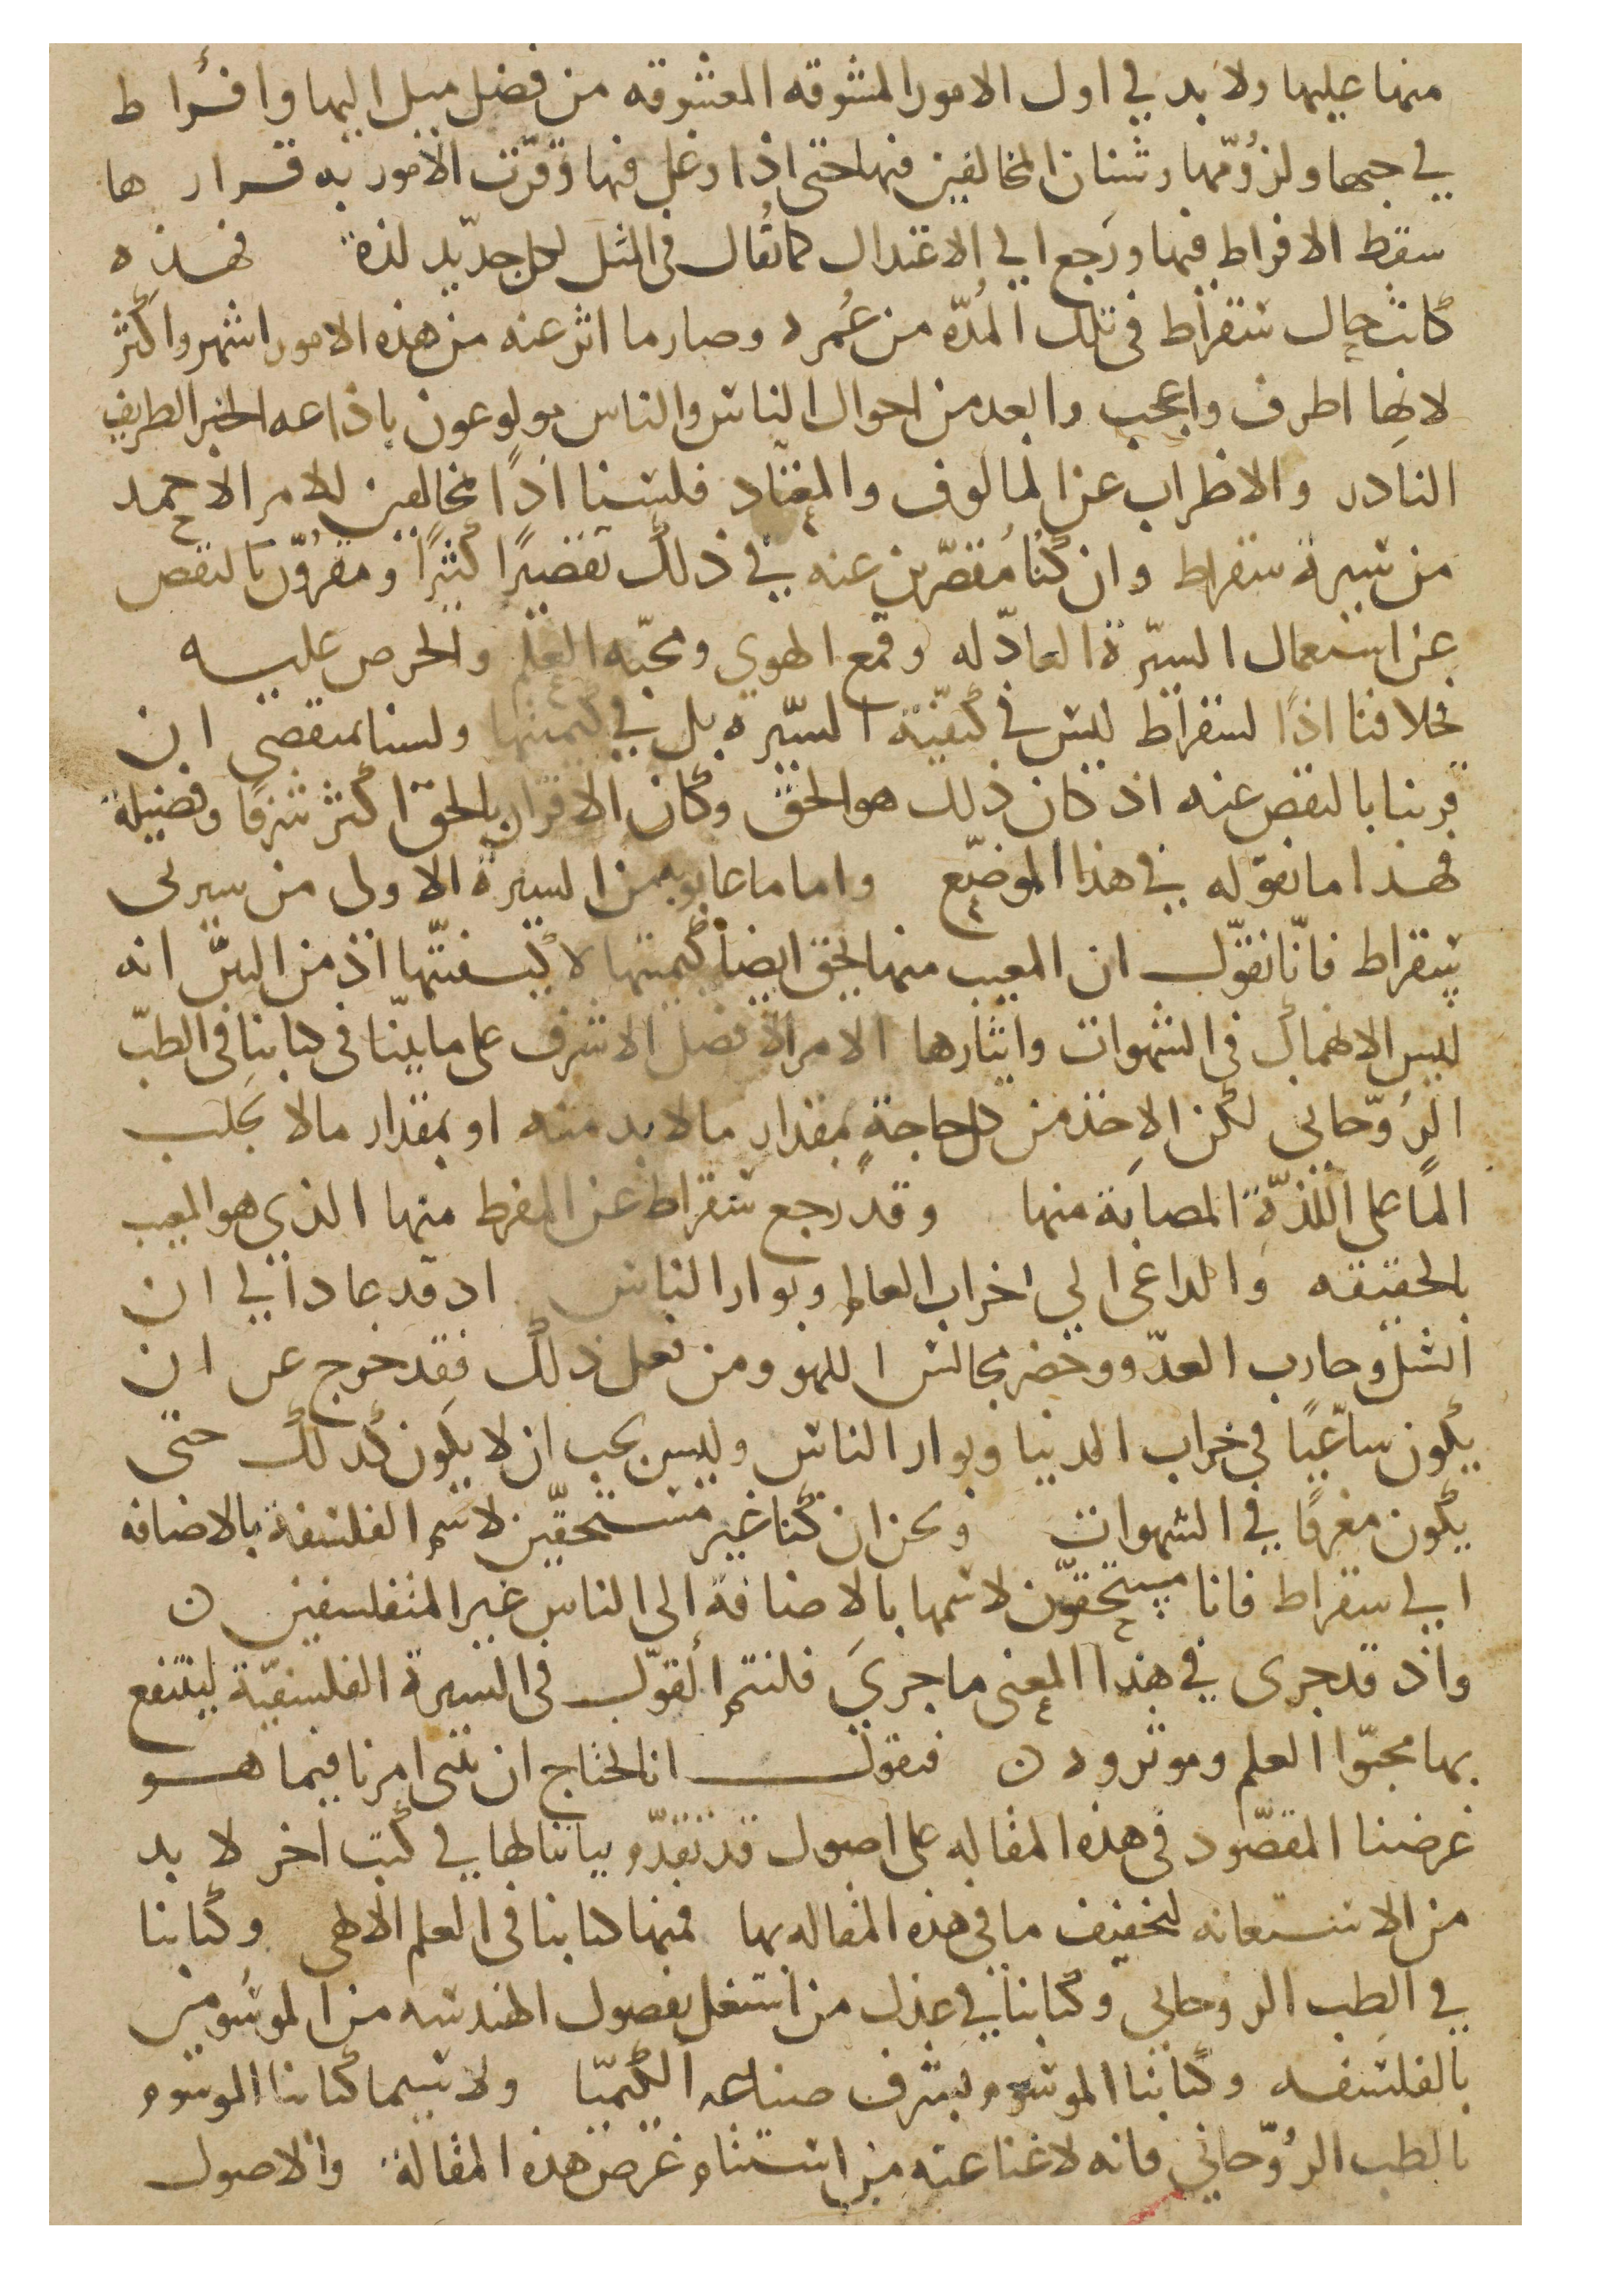 منها عليها ولا بد في اول الامور المشوقه المعشوقه من فضل ميل اليها وافراط
في حبها ولزومها وشنان المخالفين فيها حتى اذا وغل فيها وقرت الامور به قرارها
سقط الافراط فيها ورجع الي الاعتدال كما يقال في المثل لكل جديد لذة فهذه
كانت حال سقراط في تلك المدة من عمره وصار ما اثر عنه من هذه الامور اشهر واكثر
لانها اطرف واعجب وابعد من احوال الناس والناس مولوعون باذاعه الخبر الطريف
النادر والاضراب عن المالوف والمعتاد فلسنا اذًا مخالفين للامر الاحمد
من سيرة سقراط وان كنا مقصرين عنه في ذلك تقصيرًا كثيرًا ومقرون بالنقص
عن استعمال السيرة العادله وقمع الهوي ومحبه العلم والحرص عليه
فخلافنا اذًا لسقراط ليس في كيفية السيرة بل في كميتها ولسنا بمنقصي ان
قرينا بالنقص عنه اذ كان ذلك هو الحق وكان الاقرار بالحق اكثر شرفًا وفضيلة
فهذا ما نقوله في هذا الموضع واما ما عابوه من السيرة الاولى من سيرتى
سقراط فانا نقول ان المعيب منها بحق ايضا كميتها لا كيفيتها اذ من البين انه
ليس الانهماك في الشهوات وايثارها الامر الافضل الاشرف على ما بينا في كتابنا في الطب
الروحاني لكن الاخذ من كل حاجةٍ بمقدار ما لا بد منه او بمقدار ما لا يجلب
المًا على اللذة المصابة منها وقد رجع سقراط عن المفرط منها الذي هو المعيب
بالحقيقه والداعى الي اخراب العالم وبوار الناس اذ قد عاد الي ان
انسل وحارب العدو وحضر مجالس اللهو ومن فعل ذلك فقد خرج عن ان
يكون ساعيًا في خراب الدنيا وبوار الناس وليس يجب ان لا يكون كذلك حتى
يكون مغرقًا في الشهوات ونحن ان كنا غير مستحقين لاسم الفلسفة بالاضافه
الي سقراط فانا مستحقون لاسمها بالاضافة الى الناس غير المتفلسفين ن
واذ قد جرى في هذا المعنى ما جري فلنتم القول في السيرة الفلسفية لينتفع
بها محبوا العلم وموثروه ن فنقول انا نحتاج ان نبني امرنا فيما هو
غرضنا المقصود في هذه المقاله على اصول قد تقدم بياننا لها في كتب اخر لا بد
من الاستعانه لتخفيف ما في هذه المقاله بها فمنها كتابنا في العلم الالهي وكتابنا
في الطب الروحاني وكتابنا في عذل من اشتغل بفصول الهندسه من الموسومين
بالفلسفه وكتابنا الموسوم بشرف صناعه الكيميا ولا سيما كتابنا الموسوم
بالطب الروحاني فانه لا غنا عنه من استتمام غرض هذه المقالة والاصول